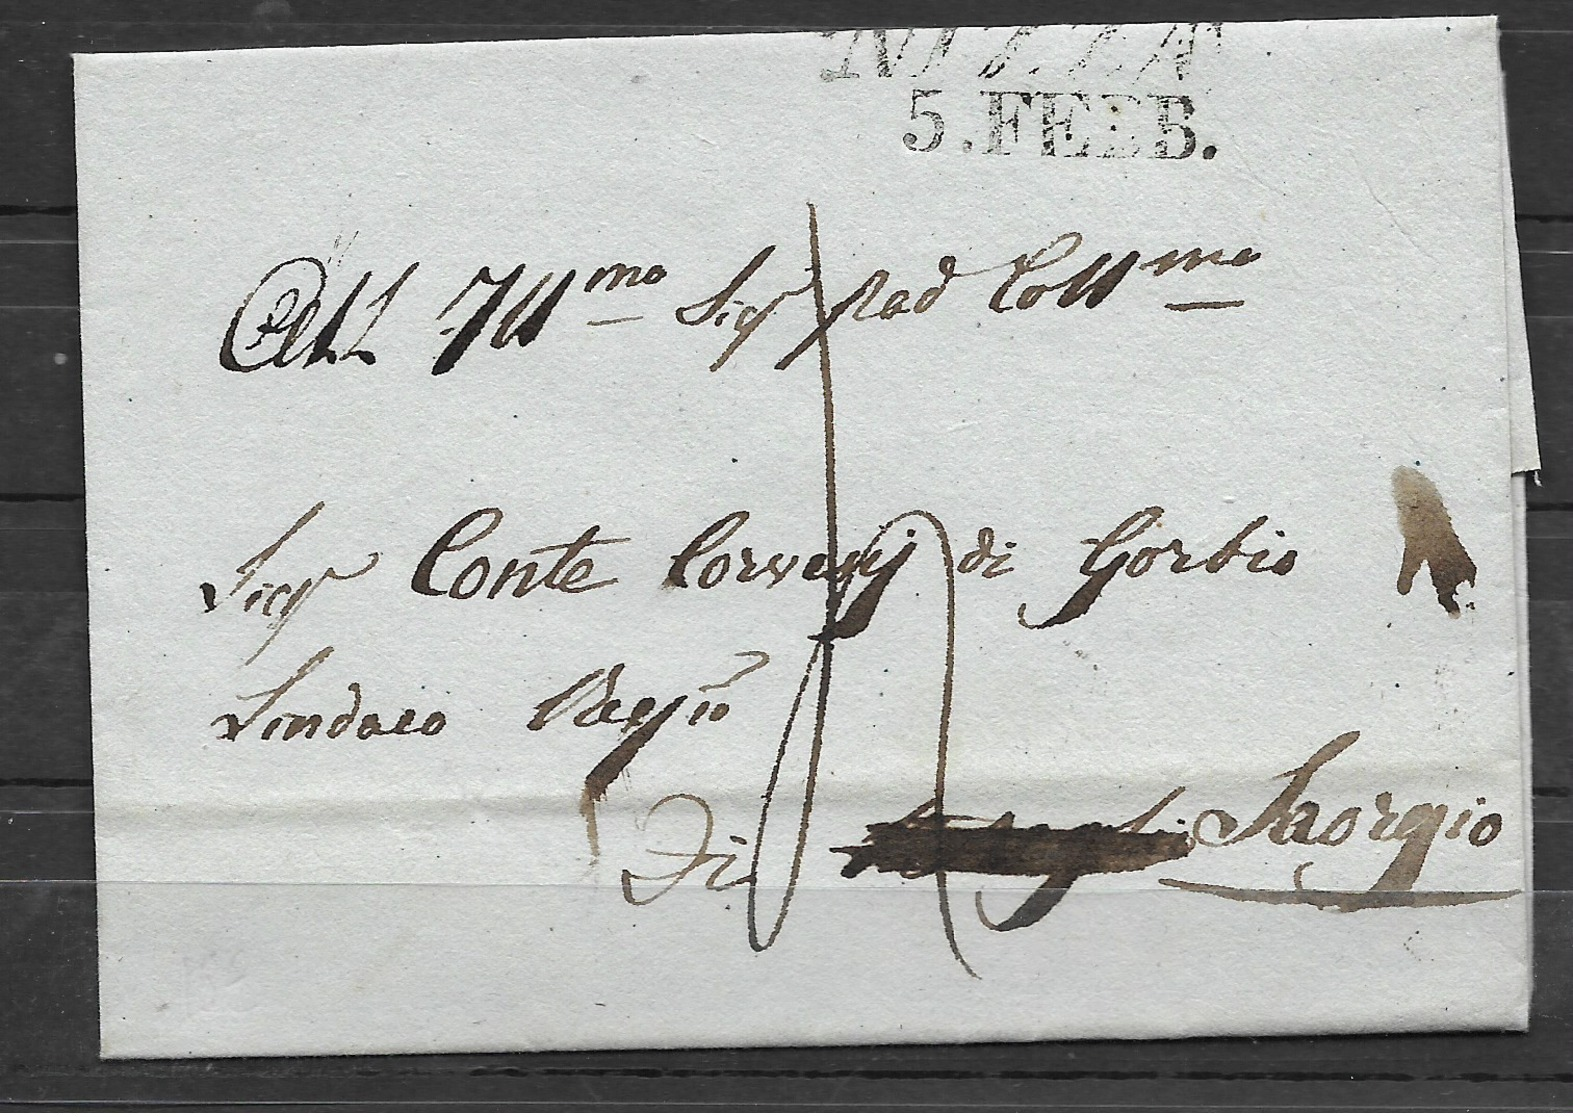 NIZZA
5. FEBB.
All Ill.mo Sig.r Pad Coll.mo
Sig.r Conte Corvesj di Gorbio
Sindaco Reg.io
Di Saorgio